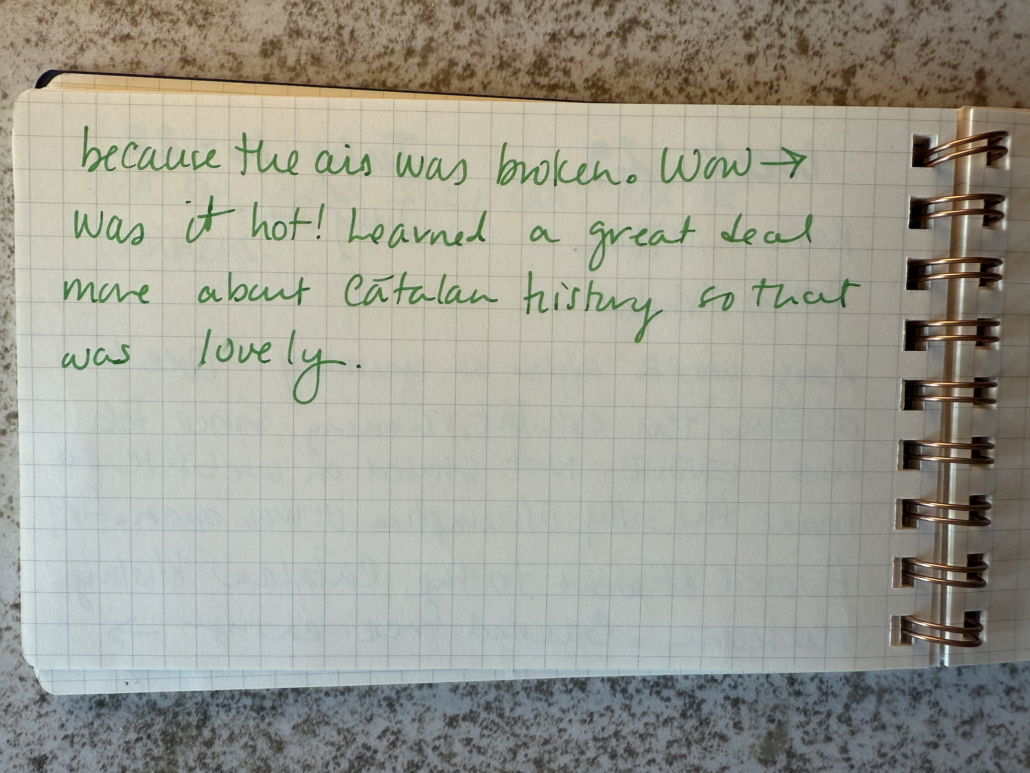 because the air was broken. Wow →
was it hot! Learned a great deal
more about Catalan history so that
was lovely.